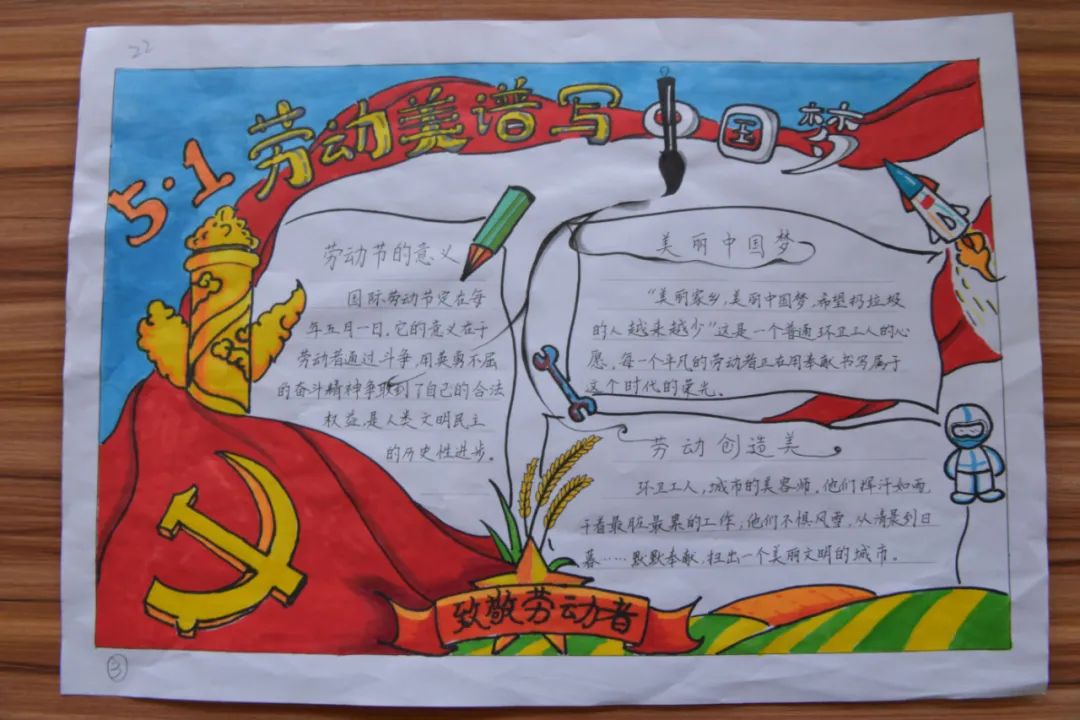 22
5·1
劳动美谱写中国梦
劳动节的意义
国际劳动节定在每
年五月一日。它的意义在于
劳动者通过斗争,用英勇不屈
的奋斗精神争取到了自己的合法
权益,是人类文明民主
的历史性进步。
美丽中国梦
“美丽家乡,美丽中国梦,希望扔垃圾
的人越来越少”这是一个普通环卫工人的心
愿,每一个平凡的劳动者正在用奉献书写属于
这个时代的荣光。
劳动创造美
环卫工人,城市的美容师。他们挥汗如雨
干着最脏最累的工作,他们不惧风雪,从清晨到日
暮……默默奉献,扫出一个美丽文明的城市。
致敬劳动者
③